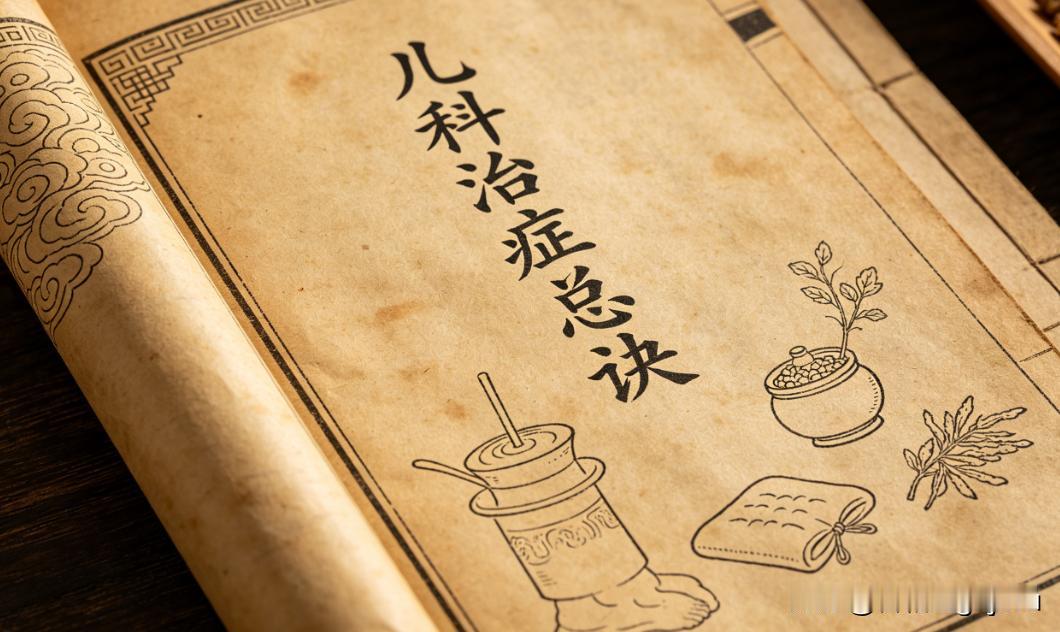 儿科治症总诀